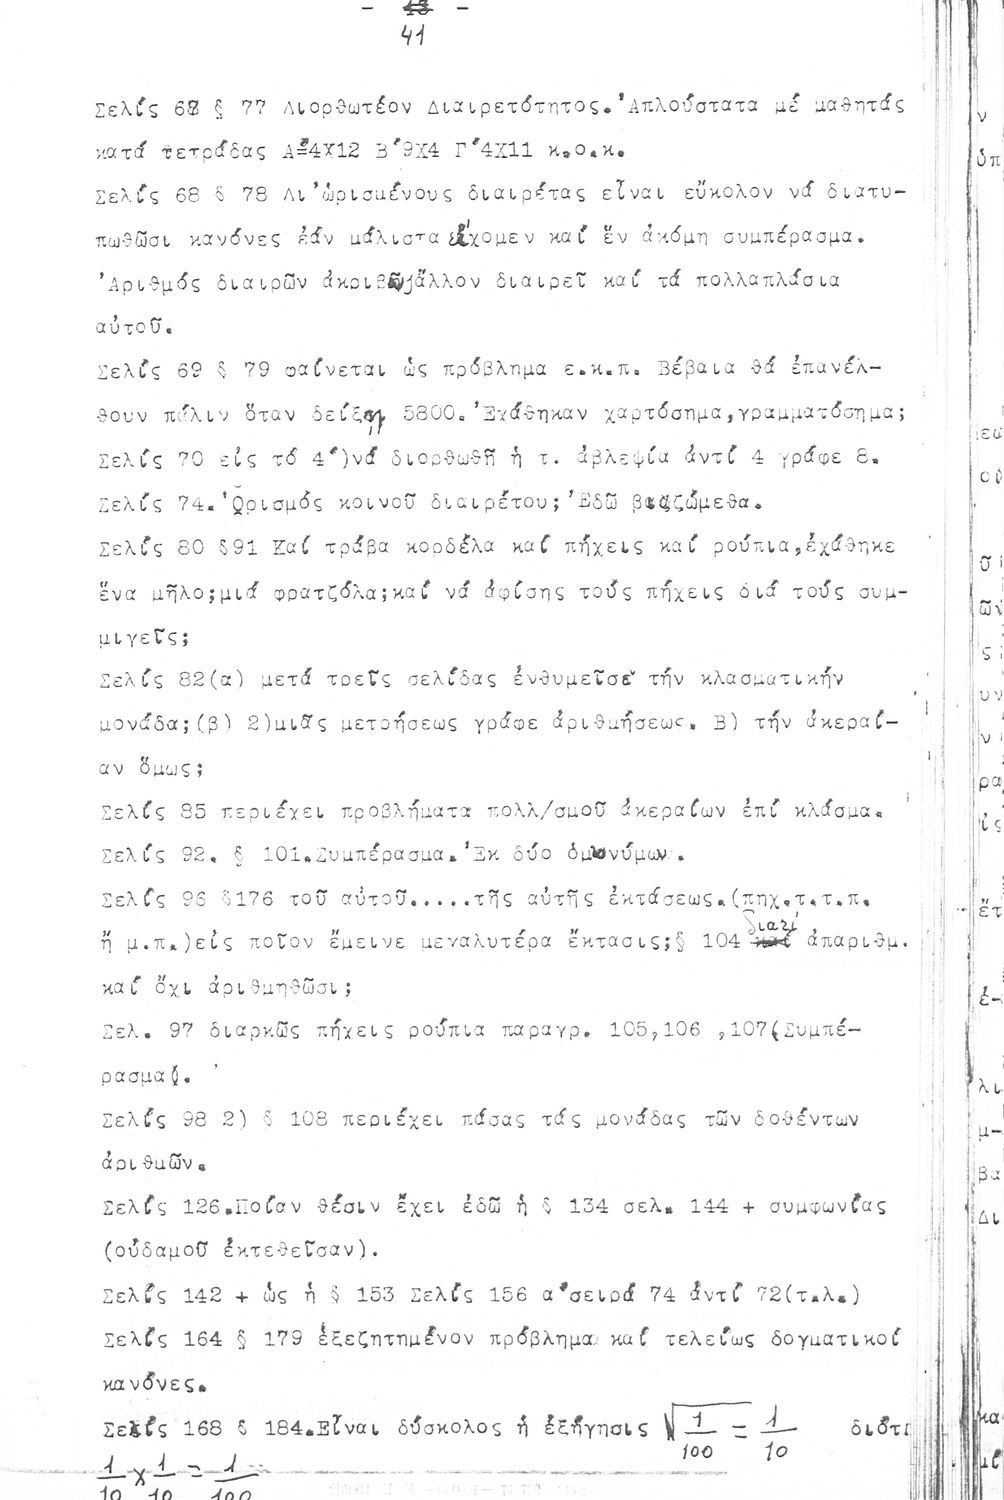 - 13 -
41
Σελίς 68 § 77 Διορθωτέον Διαιρετότητος. Ἁπλούστατα μέ μαθητάς
κατά τετράδας Α=4Χ12 Β΄9Χ4 Γ΄4Χ11 κ.ο.κ.
Σελίς 68 § 78 Δι'ὡρισμένους διαιρέτας εἶναι εὔκολον νά διατυ-
πωθῶσι κανόνες ἐάν μάλιστα εἴχομεν καί ἕν ἀκόμη συμπέρασμα.
'Αριθμός διαιρῶν ἀκριβῶς ἄλλον διαιρεῖ καί τά πολλαπλάσια
αὐτοῦ.
Σελίς 69 § 79 φαίνεται ὡς πρόβλημα ε.κ.π. Βέβαια θά ἐπανέλ-
θουν πάλιν ὅταν δείξῃ 5800. 'Εχάθηκαν χαρτόσημα,γραμματόσημα;
Σελίς 70 εἰς τό 4΄)νά διορθωθῆ ἡ τ. ἀβλεψία ἀντί 4 γράφε 8.
Σελίς 74. Ὁρισμός κοινοῦ διαιρέτου; 'Εδῶ βιαζώμεθα.
Σελίς 80 §91 Καί τράβα κορδέλα καί πήχεις καί ρούπια,ἐχάθηκε
ἕνα μῆλο;μιά φρατζόλα;καί νά ἀφίσης τούς πήχεις διά τούς συμ-
μιγεῖς;
Σελίς 82(α) μετά τρεῖς σελίδας ἐνθυμεῖσε τήν κλασματικήν
μονάδα;(β) 2)μιᾶς μετρήσεως γράφε ἀριθμήσεως. Β) τήν ἀκεραί-
αν ὅμως;
Σελίς 85 περιέχει προβλήματα πολλ/σμοῦ ἀκεραίων ἐπί κλάσμα.
Σελίς 92. § 101.Συμπέρασμα. 'Εκ δύο ὁμωνύμων.
Σελίς 96 §176 τοῦ αὐτοῦ.....τῆς αὐτῆς ἐκτάσεως.(πηχ.τ.τ.π.
ἤ μ.π.)εἰς ποῖον ἔμεινε μεγαλυτέρα ἔκτασις;§ 104 διατί ἀπαριθμ.
καί ὄχι ἀριθμηθῶσι;
Σελ. 97 διαρκῶς πήχεις ρούπια παραγρ. 105,106 ,107(Συμπέ-
ρασμα).
Σελίς 98 2) § 108 περιέχει πάσας τάς μονάδας τῶν δοθέντων
ἀριθμῶν.
Σελίς 126.Ποίαν θέσιν ἔχει ἐδῶ ἡ § 134 σελ. 144 + συμφωνίας
(οὐδαμοῦ ἐκτεθεῖσαν).
Σελίς 142 + ὡς ἡ § 153 Σελίς 156 α΄σειρά 74 ἀντί 72(τ.λ.)
Σελίς 164 § 179 ἐξεζητημένον πρόβλημα καί τελείως δογματικοί
κανόνες.
Σελίς 168 § 184.Εἶναι δύσκολος ἡ ἐξήγησις √1/100 = 1/10 διότι
1/10 x 1/10 = 1/100